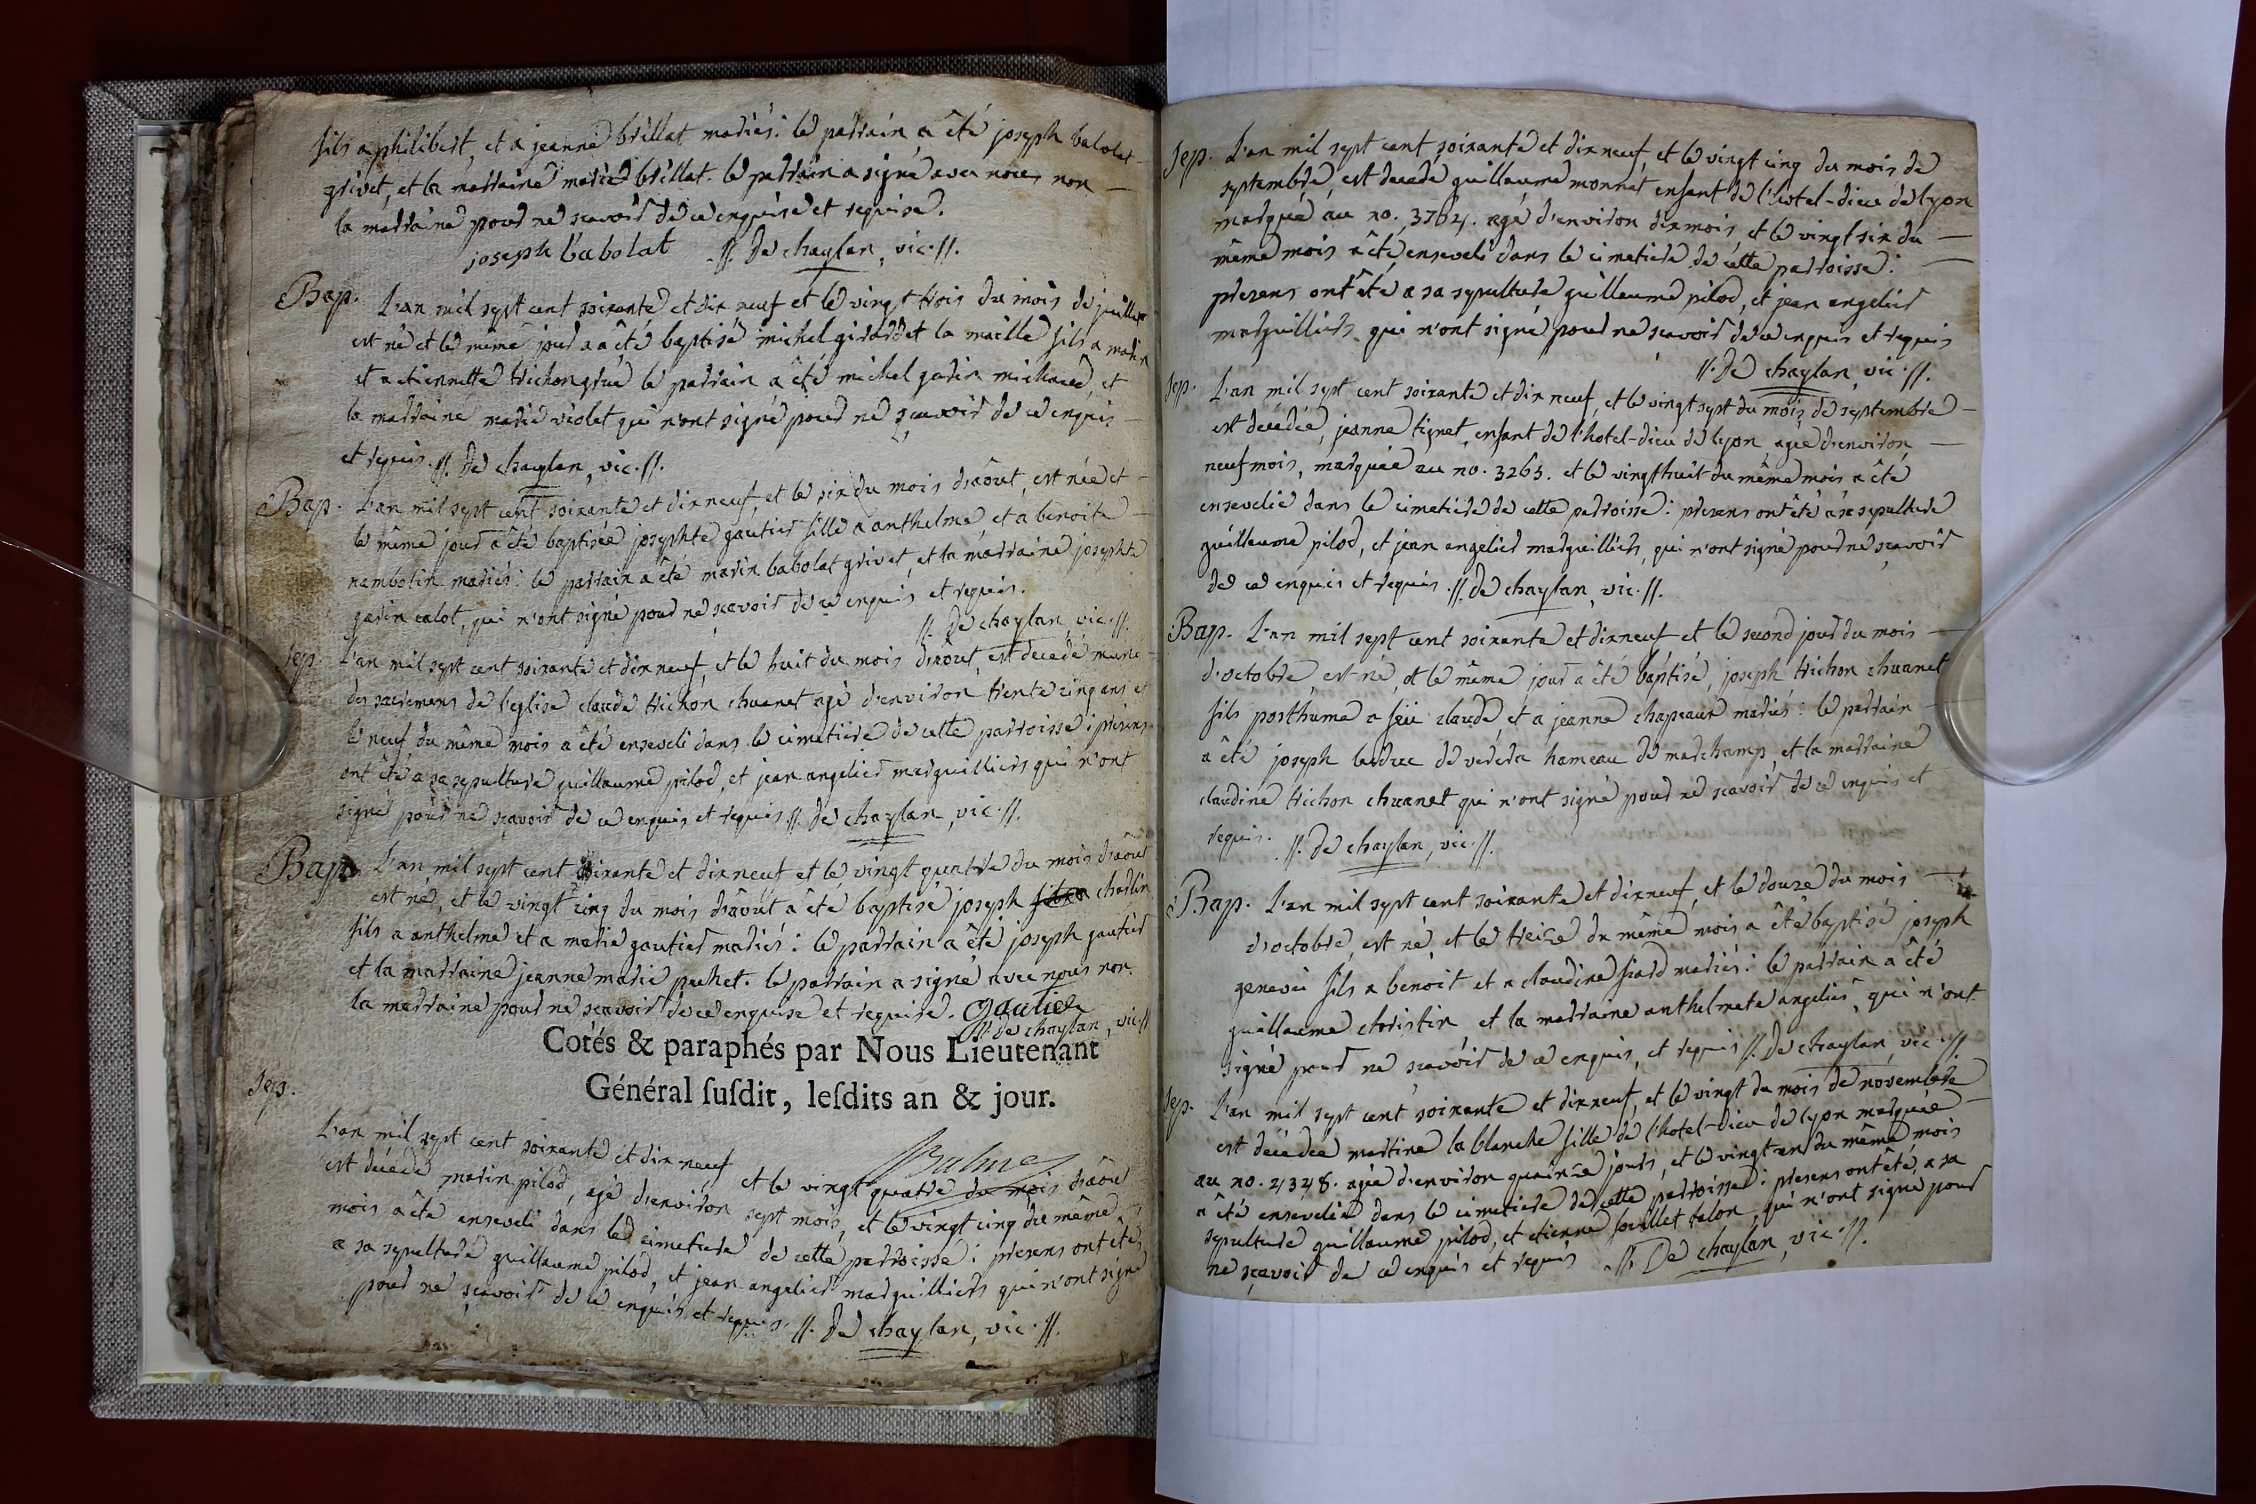 fils a philibert, et a jeanne brillat mariés: le parrain a êté joseph babolat
grivet, et la marraine marie brillat. le parrain a signé avec nous non
la marraine pour ne sçavoir de ce enquise et requise.
joseph babolat //. De chaylan, vic. //.
Bap. L'an mil sept cent soixante et dix neuf et le vingt trois du mois de juillet
est né et le même jour a été baptisé michel girardet la maille fils a marin
et a etiennette trichon grué le parrain a êté michel garin michaud, et
la marraine marie violet qui n'ont signé pour ne sçavoir de ce enquis
et requis. //. De chaylan, vic. //.
Bap. L'an mil sept cent soixante et dix neuf, et le six du mois d'août, est née et
le même jour a êté baptisée josephte gautier fille a anthelme et a benoite
nambotin mariés: le parrain a êté marin babolat grivet, et la marraine josephte
garin calot, qui n'ont signé pour ne sçavoir de ce enquis et requis.
//. De chaylan vic. //.
Sep. L'an mil sept cent soixante et dix neuf, et le huit du mois d'août, est decedé muni
des sacremens de l'eglise claude trichon chuanet agé d'environ trente cinq ans et
le neuf du même mois a êté enseveli dans le cimetiere de cette parroisse: presens
ont êté a sa sepulture guillaume pilod, et jean angelier marguilliers qui n'ont
signé pour ne sçavoir de ce enquis et requis. //. De chaylan, vic. //.
Bap. L'an mil sept cent soixante et dix neuf et le vingt quatre du mois d'août
est né, et le vingt cinq du mois d'août a êté baptisé joseph charlin
fils a anthelme et a marie gautier mariés: le parrain a êté joseph gautier
et la marraine jeanne marie puchet. le parrain a signé avec nous non
la marraine pour ne sçavoir de ce enquise et requise. Gautier
//. de chaylan, vic. //
Cotés & paraphés par Nous Lieutenant
Général ſuſdit, leſdits an & jour.
Balme
Sep.
L'an mil sept cent soixante et dix neuf et le vingt quatre du mois d'août
est décédé marin pilod, agé d'environ sept mois, et le vingt cinq du même
mois a êté enseveli dans le cimetiere de cette parroisse: presens ont êté
a sa sepulture guillaume pilod, et jean angelier marguilliers qui n'ont signé
pour ne sçavoir de ce enquis et requis. //. De chaylan, vic. //.
Sep. L'an mil sept cent soixante et dix neuf, et le vingt cinq du mois de
septembre, est decedé guillaume monnet enfant de l'hotel-dieu de lyon
marqué au no. 3764. agé d'environ dix mois et le vingt six du
même mois a êté enseveli dans le cimetiere de cette parroisse:
presens ont êté a sa sepulture guillaume pilod, et jean angelier
marguilliers qui n'ont signé pour ne sçavoir de ce enquis et requis
//. De chaylan, vic. //.
Sep. L'an mil sept cent soixante et dix neuf, et le vingt sept du mois de septembre
est decédée, jeanne tignet, enfant de l'hotel-dieu de lyon agée d'environ
neuf mois, marquée au no. 3265. et le vingt huit du même mois a êté
ensevelie dans le cimetiere de cette parroisse: presens ont êté a sa sepulture
guillaume pilod, et jean angelier marguilliers, qui n'ont signé pour ne sçavoir
de ce enquis et requis. //. De chaylan, vic. //.
Bap. L'an mil sept cent soixante et dix neuf et le second jour du mois
d'octobre est né, et le même jour a êté baptisé, joseph trichon chuanet
fils posthume a feü claude, et a jeanne chapeaux mariés: le parrain
a êté joseph leduc de hameau de marchamp, et la marraine
claudine trichon chuanet qui n'ont signé pour ne sçavoir de ce enquis et
requis. //. De chaylan, vic. //.
Bap. L'an mil sept cent soixante et dix neuf, et le douze du mois
d'octobre, est né, et le treize du même mois a êté baptisé joseph
genevai fils a benoit et a claudine siard mariés: le parrain a êté
guillaume christin et la marraine anthelmete angelier, qui n'ont
signé pour ne sçavoir de ce enquis, et requis //. De chaylan, vic. //.
Sep. L'an mil sept cent soixante et dix neuf, et le vingt du mois de novembre
est decédée martine la blanche fille de l'hotel-dieu de lyon marquée
au no. 4348. agée d'environ quainze jours, et le vingt un du même mois
a êté ensevelie dans le cimetiere de cette parroisse: presens ont êté, a sa
sepulture guillaume pilod, et etienne souillet talon qui n'ont signé pour
ne sçavoir de ce enquis et requis //. De chaylan, vic. //.